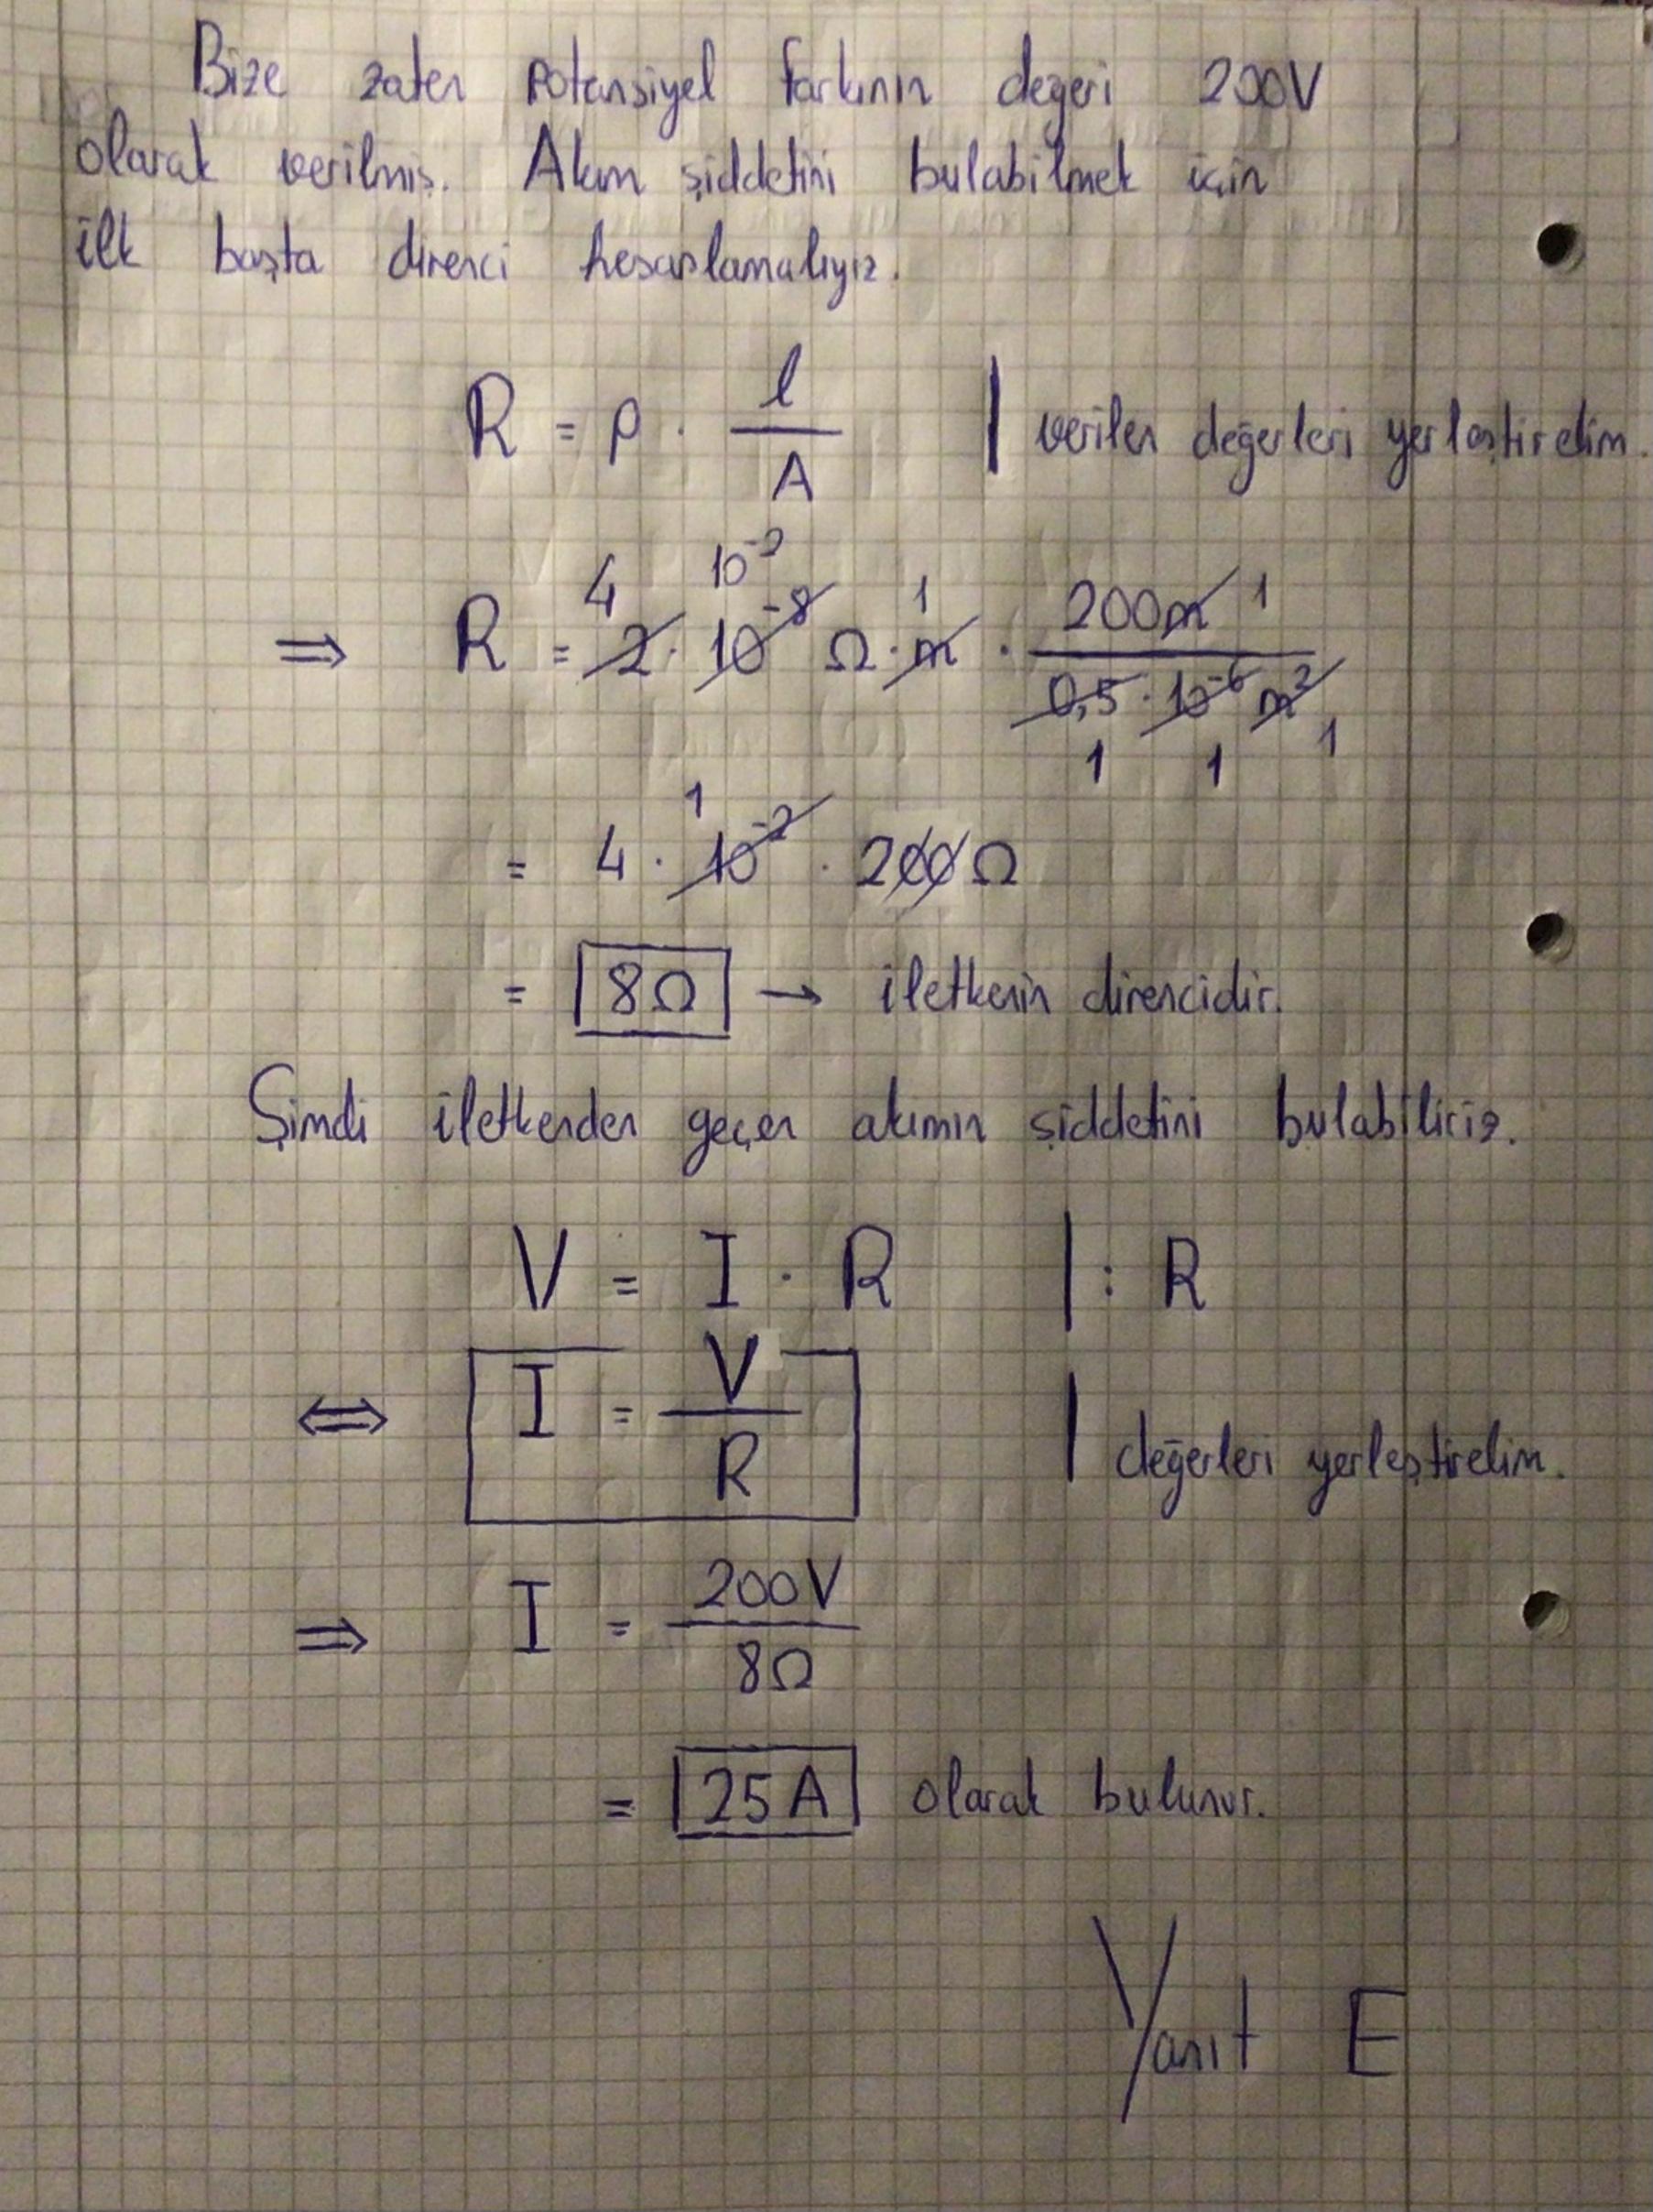 Bize zaten potansiyel farkının değeri 200V
olarak verilmiş. Akım şiddetini bulabilmek için
ilk başta direnci hesaplamalıyız.
R = ρ · l / A | verilen değerleri yerleştirelim.
⇒ R = 2 · 10⁻⁸ Ω · m · 200m / 0,5 · 10⁻⁶ m² 4 10⁻² 1 1 1 1 1
= 4 · 10⁻² · 200 Ω 1
= 8Ω → iletkenin direncidir.
Şimdi iletkenden geçen akımın şiddetini bulabiliriz.
V = I · R | : R
⇔ I = V / R | değerleri yerleştirelim.
⇒ I = 200V / 8Ω
= 25A olarak bulunur.
Yanıt E